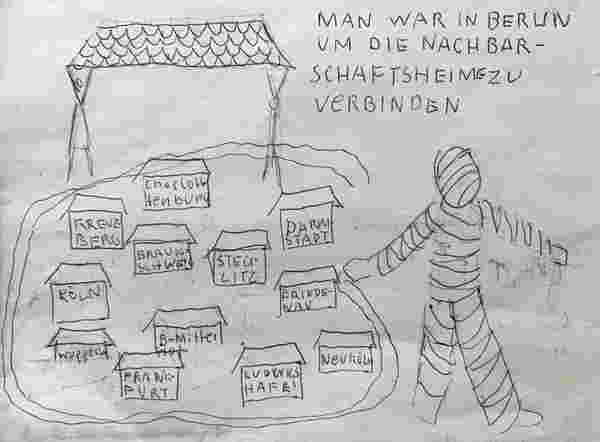 MAN WAR IN BERLIN
UM DIE NACHBAR-
SCHAFTSHEIME ZU
VERBINDEN
CHARLOT
TENBURG
KREUZ
BERG
DARM
STADT
BRAUN
SCHWEI
STEG
LITZ
KÖLN
FRIEDE
NAU
B-Mittel
Hof
FRANK
FURT
LUDWIGS
HAFE
NEUKÖLN